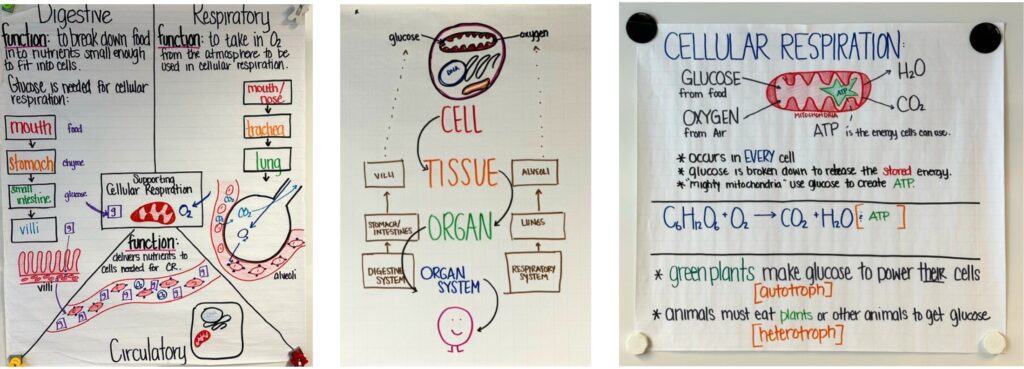 Digestive
function: to break down food
into nutrients small enough
to fit into cells.
Glucose is needed for cellular
respiration:
mouth food
stomach chyme
small
intestine glucose
villi g
villi
Respiratory
function: to take in O₂
from the atmosphere to be
used in cellular respiration.
mouth/
nose
trachea
lung
CO₂
O₂
alveoli
Supporting
Cellular Respiration
g O₂
function:
delivers nutrients to
cells needed for CR.
Circulatory
glucose oxygen
DNA
CELL
TISSUE
ORGAN
ORGAN
SYSTEM
VILLI
STOMACH/
INTESTINES
DIGESTIVE
SYSTEM
ALVEOLI
LUNGS
RESPIRATORY
SYSTEM
CELLULAR RESPIRATION:
GLUCOSE
from food
OXYGEN
from Air
ATP
MITOCHONDRIA
H₂O
CO₂
ATP is the energy cells can use.
* occurs in EVERY cell
* glucose is broken down to release the stored energy.
* "mighty mitochondria" use glucose to create ATP.
C₆H₁₂O₆ + O₂ → CO₂ + H₂O [& ATP]
* green plants make glucose to power their cells
[autotroph]
* animals must eat plants or other animals to get glucose
[heterotroph]